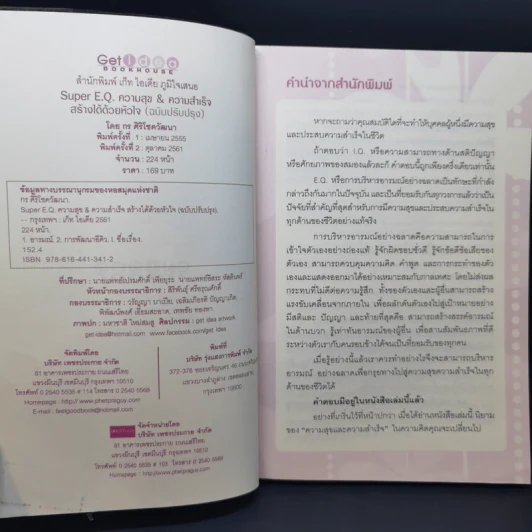 Get idea
BOOKHOUSE
สำนักพิมพ์ เก็ท ไอเดีย ภูมิใจเสนอ
Super E.Q. ความสุข & ความสำเร็จ
สร้างได้ด้วยหัวใจ (ฉบับปรับปรุง)
โดย กร ศิริโชควัฒนา
พิมพ์ครั้งที่ 1 : เมษายน 2555
พิมพ์ครั้งที่ 2 : ตุลาคม 2561
จำนวน : 224 หน้า
ราคา : 169 บาท
ข้อมูลทางบรรณานุกรมของหอสมุดแห่งชาติ
กร ศิริโชควัฒนา
Super E.Q. ความสุข & ความสำเร็จ สร้างได้ด้วยหัวใจ (ฉบับปรับปรุง).
-- กรุงเทพฯ : เก็ท ไอเดีย 2561
224 หน้า.
1. อารมณ์. 2. การพัฒนาอีคิว. I. ชื่อเรื่อง.
152.4
ISBN 978-616-441-341-2
ที่ปรึกษา : นายแพทย์ประมศักดิ์ เพียยุระ นายแพทย์ธีระ
หัวหน้ากองบรรณาธิการ : สิริพันธุ์ ศรีอรุณศักดิ์
กองบรรณาธิการ :
ภาพปก : มหาชาติ ใหม่สมสู ศิลปกรรม : get idea artwork
get-idea@hotmail.com www.facebook.com/get.idea
จัดพิมพ์โดย
บริษัท เพชรประกาย จำกัด
81 อาคารเพชรประกาย ถนนเสรีไทย
แขวงมีนบุรี เขตมีนบุรี กรุงเทพฯ 10510
โทรศัพท์ 0 2540 5535 # 114 โทรสาร 0 2540 5568
Homepage : http://www.phetpraguy.com
E-mail : feelgoodbook@hotmail.com
พิมพ์ที่
กรุงเทพฯ 10600
จัดจำหน่ายโดย
บริษัท เพชรประกาย จำกัด
81 อาคารเพชรประกาย ถนนเสรีไทย
แขวงมีนบุรี เขตมีนบุรี กรุงเทพฯ 10510
โทรศัพท์ 0 2540 5535 # 103, โทรสาร 0 2540 5568
Homepage : http://www.phetpraguy.com
คำนำจากสำนักพิมพ์
หากจะถามว่าคุณสมบัติใดที่จะทำให้บุคคลผู้หนึ่งมีความสุข
และประสบความสำเร็จในชีวิต
ถ้าตอบว่า I.Q. หรือความสามารถทางด้านสติปัญญา
หรือศักยภาพของสมองแล้วละก็ คำตอบนี้ถูกเพียงครึ่งเดียวเท่านั้น
E.Q. หรือการบริหารอารมณ์อย่างฉลาดเป็นทักษะที่กำลัง
กล่าวถึงกันมากในปัจจุบัน และเป็นที่ยอมรับกันทุกวงการแล้วว่าเป็น
ปัจจัยที่สำคัญที่สุดสำหรับการมีความสุขและประสบความสำเร็จใน
ทุกด้านของชีวิตอย่างแท้จริง
การบริหารอารมณ์อย่างฉลาดคือความสามารถในการ
เข้าใจตัวเองอย่างถ่องแท้ รู้จักผิดชอบชั่วดี รู้จักข้อดีข้อเสียของ
ตัวเอง สามารถควบคุมความคิด คำพูด และการกระทำของตัว
เองและแสดงออกมาได้อย่างเหมาะสมกับกาลเทศะ โดยไม่ส่งผล
กระทบที่ไม่ดีต่อความรู้สึก ทั้งของตัวเองและผู้อื่นสามารถสร้าง
แรงขับเคลื่อนจากภายใน เพื่อผลักดันตัวเองไปสู่เป้าหมายอย่าง
มีสติและ ปัญญา และท้ายที่สุดคือ สามารถสร้างสรรค์อารมณ์
ในด้านบวก รู้เท่าทันอารมณ์ของผู้อื่น เพื่อสานสัมพันธภาพที่ดี
ระหว่างตัวเรากับคนรอบข้างได้จนเป็นที่ยอมรับของทุกคน
เมื่อรู้อย่างนี้แล้วเราควรทำอย่างไรจึงจะสามารถบริหาร
อารมณ์ อย่างฉลาดเพื่อกรุยทางไปสู่ความสุขความสำเร็จในทุก
ด้านของชีวิตได้
คำตอบมีอยู่ในหนังสือเล่มนี้แล้ว
อย่างที่เกริ่นไว้ที่หน้าปกว่า เมื่อได้อ่านหนังสือเล่มนี้ นิยาม
ของ "ความสุขและความสำเร็จ" ในความคิดคุณจะเปลี่ยนไป